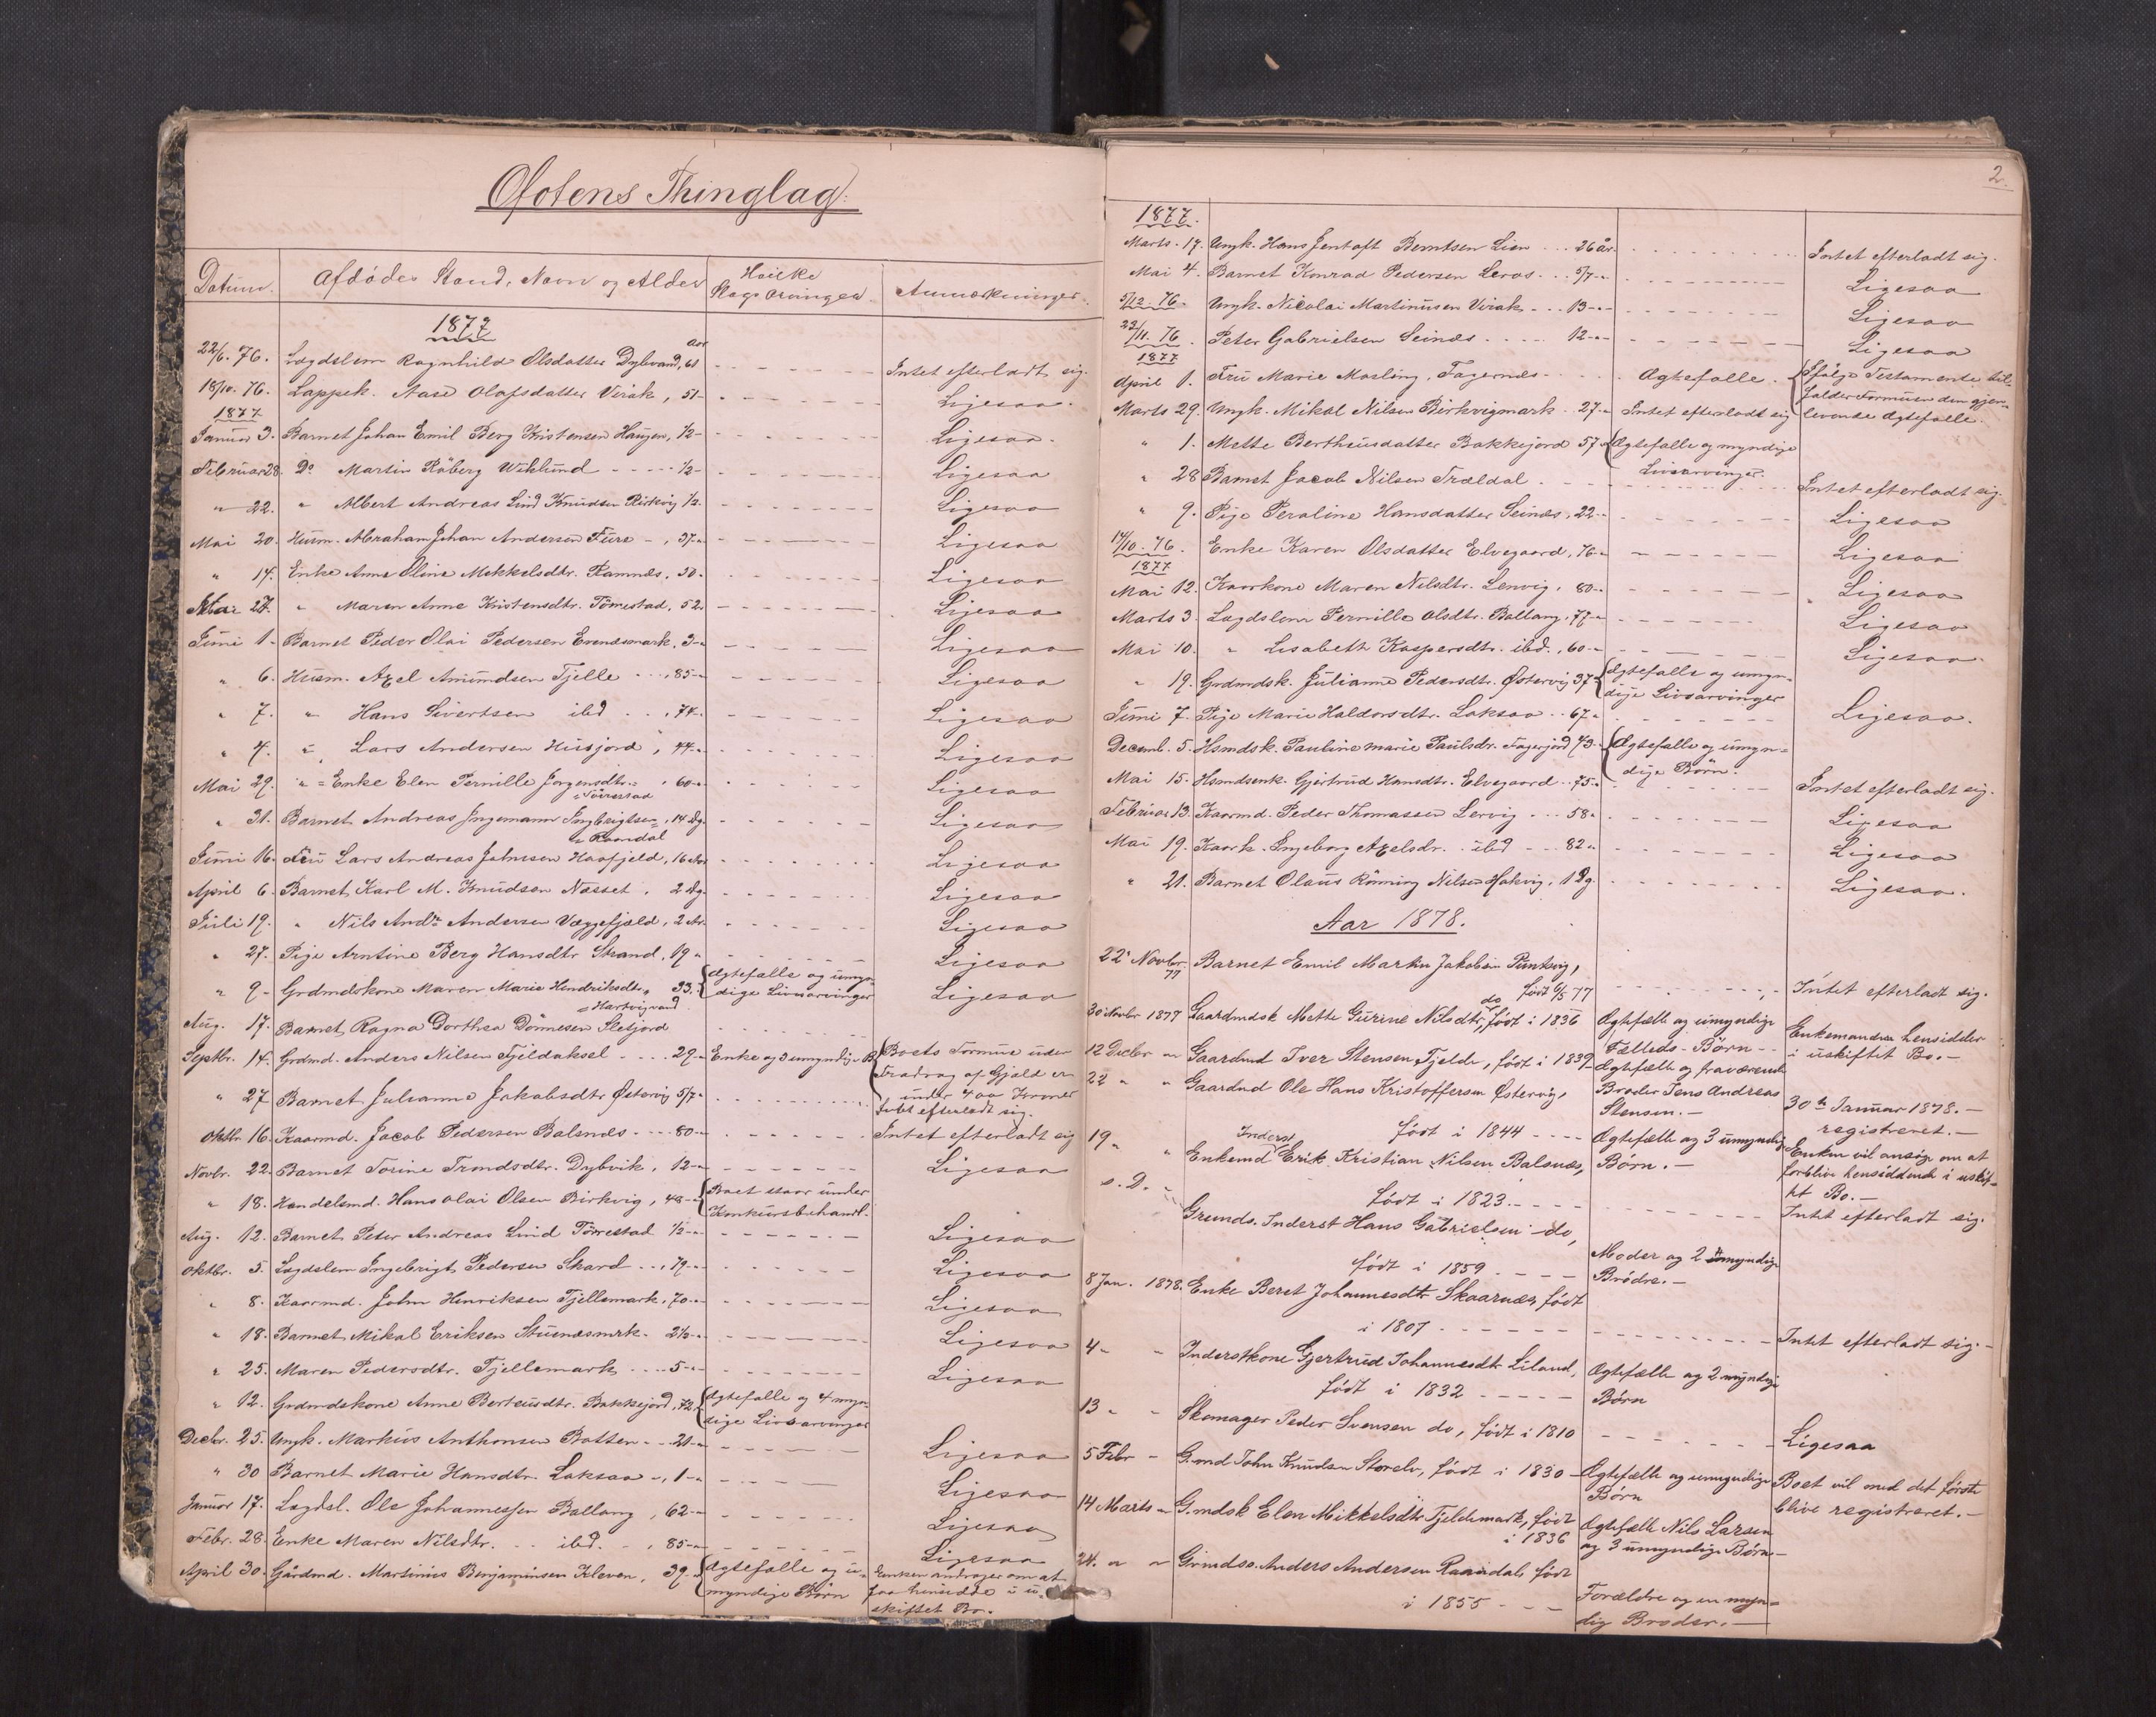 Ofotens Thinglag.
Datum. Afdödes Stand, Navn og Alder Hvilke Slags Arvinger. Anmærkninger.
1877
Aar
22/6. 76. Lægdslem Ragnhild Olsdatter Dybvand, 61 Intet efterladt sig.
18/10. 76. Lappek. Aase Olafsdatter Virak, 51- Ligesaa.
1877
Januar 3. Barnet Johan Emil Berg Kristensen Haugen, 1/2- Ligesaa.
Februar 28. Do Martin Råberg Wiklund 1/2- Ligesaa
" 22. " Albert Andreas Lind Knudsen Birkvig 1/2. Ligesaa
Mai 20. Husm. Abraham Johan Andersen Fure -, 37-" Ligesaa
" 14. Enke Anne Oline Mekkelsdtr. Ramnæs, 50. Ligesaa
Mai 27. " Maren Anne Kristensdtr. Törrestad, 52. Ligesaa
Juni 1- Barnet Peder Olai Pedersen Evenæsmark, 3-" Ligesaa
" 6. Husm. Axel Amundsen Tjelle, 85-" Ligesaa
" 7. " Hans Sivertsen ibd, 74. Ligesaa
" 4. " Lars Andersen Husjord, 44-" Ligesaa
Mai 29. " = Enke Elen Pernille Jörgensdtr. = 60-" Ligesaa
= Törrestad
" 31. Barnet Andreas Ingemann Ingbrigtsen =, 14 Dg. Ligesaa
= Raandal
Juni 16. Lars Andreas Johnsen Haafjeld, 16 Aar Ligesaa
April 6. Barnet Karl M. Knudsen Næsset, 2 Dg. Ligesaa
Juli 19. " Nils Andr. Andersen Væggefjeld, 2 Ar. Ligesaa
" 27. Pige Arntine Berg Hansdtr Strand, 19 " Ligesaa
" 9- Grdmdskone Maren Marie Hendriksdtr = 33. Ægtefælle og umyn- Ligesaa
= Hartvigvand dige Livsarvinger
Aug. 17. Barnet Ragna Dorthea Dönnesen Sletjord
Septbr. 14. Grdmd. Anders Nilsen Tjeldaksel 29-" Enke og 3 umyndige B. Boets Formue uden
Fradrag af Gjæld er
" 27 Barnet Julianne Jakobsdtr Östervig 5/7-" under 400 Kroner
Intet efterladt sig.
Oktbr. 16. Kaarmd. Jacob Pedersen Balsnæs 80-" Intet efterladt sig
Novbr. 22. Barnet Torine Trondsdtr. Dybvik, 12-" Ligesaa
" 18. Handelsmd. Hans Olai Olsen Birkvig, 48-" Boet staar under
Konkursbehandl.
Aug. 12. Barnet Peter Andreas Lind Törrestad 1/2-" Ligesaa
Oktbr. 5. Lægdslem Ingebrigt Pedersen Skard, 79-" Ligesaa
" 8. Kaarmd. John Henriksen Tjellemark, 70-" Ligesaa
" 18. Barnet Mikal Eriksen Stuenæsmrk. 2½-" Ligesaa
" 25. Maren Pedersdtr. Tjellemark 5-" Ligesaa
" 12. Grdmdskone Anne Berteusdtr. Bakkejord, 72 " Ægtefælle og 4 myn-
dige Livsarvinger
Decbr. 25. Ungk. Markus Anthonsen Botten 21-" Ligesaa
" 30 Barnet Marie Hansdtr. Laksaa -, 1-" Ligesaa
Januar 17. Lægdsl. Ole Johannessen Ballang, 62-" Ligesaa
Febr. 28. Enke Maren Nilsdtr. ibd., 85-" Ligesaa
April 30. Gårdmd. Martinus Benjaminsen Kleven, 39. Ægtefælle og u- Enken andrager om at
myndige Börn faa hensidde i u-
skiftet Bo.
2.
1877.
Marts. 17. Ungk. Hans Jentoft Berntsen Lien 26 år. Intet efterladt sig.
Mai 4. Barnet Konrad Pedersen Leros 5/7-" Ligesaa
5/12. 76. Ungk. Nicolai Martinusen Virak 13-" Ligesaa
22/11. 76. Peter Gabrielsen Seinæs 12-" Ligesaa
1877
April 1. Fru Marie Mosling, Fagernæs Ægtefælle. Ifölge Testamente til-
falder Formuen den gjen-
Marts 29. Ungk. Mikal Nilsen Birkvigmark 27-" Intet efterladt sig levende Ægtefælle.
" 1. Mette Bertheusdatter Bakkejord 57-" Ægtefælle og myndige
Livsarvinger.
" 28 Barnet Jacob Nilsen Trældal Intet efterladt sig.
" 9. Pige Peraline Hansdatter Seinæs, 22-" Ligesaa
14/10. 76. Enke Karen Olsdatter Elvegaard, 76-" Ligesaa
1877
Mai 12. Kaarkone Maren Nilsdtr. Lervig, 80-" Ligesaa
Marts 3. Lægdslem Pernille Olsdtr. Ballang, 77-" Ligesaa
Mai 10. " Lisabeth Kaspersdtr. ibd., 60-" Ligesaa
" 19. Grdmdsk. Julianne Pedersdtr. Östervig 37-" Ægtefælle og umyn-
dige Livsarvinger
Juni 7. Pige Marie Haldorsdtr. Laksaa 67-" Ligesaa.
Decemb. 5. Hsmdsk. Pauline Marie Paulsdr. Fagerjord 73- Ægtefælle og umyn-
dige Börn.
Mai 15. Hsmdsenk. Gjertrud Hansdtr. Elvegaard 75-" Intet efterladt sig.
Februar 13. Kaarmd. Peder Thomassen Lervig 58-" Ligesaa
Mai 19. Kaark. Ingeborg Axelsdr. ibd 82 " Ligesaa
" 21. Barnet Olaus Rönning Nilsen Håkvig, 1 Dg. Ligesaa.
Aar 1878.
22' Novbr. 77 Barnet Emil Martin Jakobsen Puntsvig,
född 6/5 77 Intet efterladt sig.
30 Novbr 1877 Gaardmdsk Mette Gurine Nilsdtr, do född i 1836 Ægtefælle og umyndige Enkemanden hensidder
Fælleds-Börn i uskiftet Bo.-
12 Decbr " Gaardmd Iver Stensen Tjelde, födt i 1839 Ægtefælle og fraværende
22 " " Gaardmd Ole Hans Kristoffersen Östervig, Broder Jens Andreas
Stensen.- 30te Januar 1878.-
födt i 1844 Ægtefælle og 3 umyndige registreret.-
19 " " Inderst Enkemd Erik Kristian Nilsen Balsnæs, Börn.- Enken vil ansöge om at
forblive hensiddende i uskif-
födt i 1823. tet Bo.-
s. D. - Grmds. Inderst Hans Gabrielsen do, Intet efterladt sig.
födt i 1859 Moder og 2 umyndige
Brödre.-
8 Jan. 1878. Enke Beret Johannesdtr Skaarnæs, födt
i 1807 Intet efterladt sig.-
4 " " Inderstkone Gjertrud Johannesdtr Liland, Ægtefælle og 2 myndige
födt i 1832 Börn
13 " " Skomager Peder Svensen do, födt i 1810 Ligesaa
5 Febr " G.md John Knudsen Storelv, födt i 1830 Ægtefælle og umyndige Boet vil med det förste
Börn blive registreret.-
14 Marts " G.mdsk Elen Mikkelsdtr Tjeldemark, födt Ægtefælle Nils Larsen
i 1836 og 3 umyndige Börn-
24. " " Grmdss. Anders Andersen Raandal, födt
i 1855 Forældre og en myn-
dig Broder.-